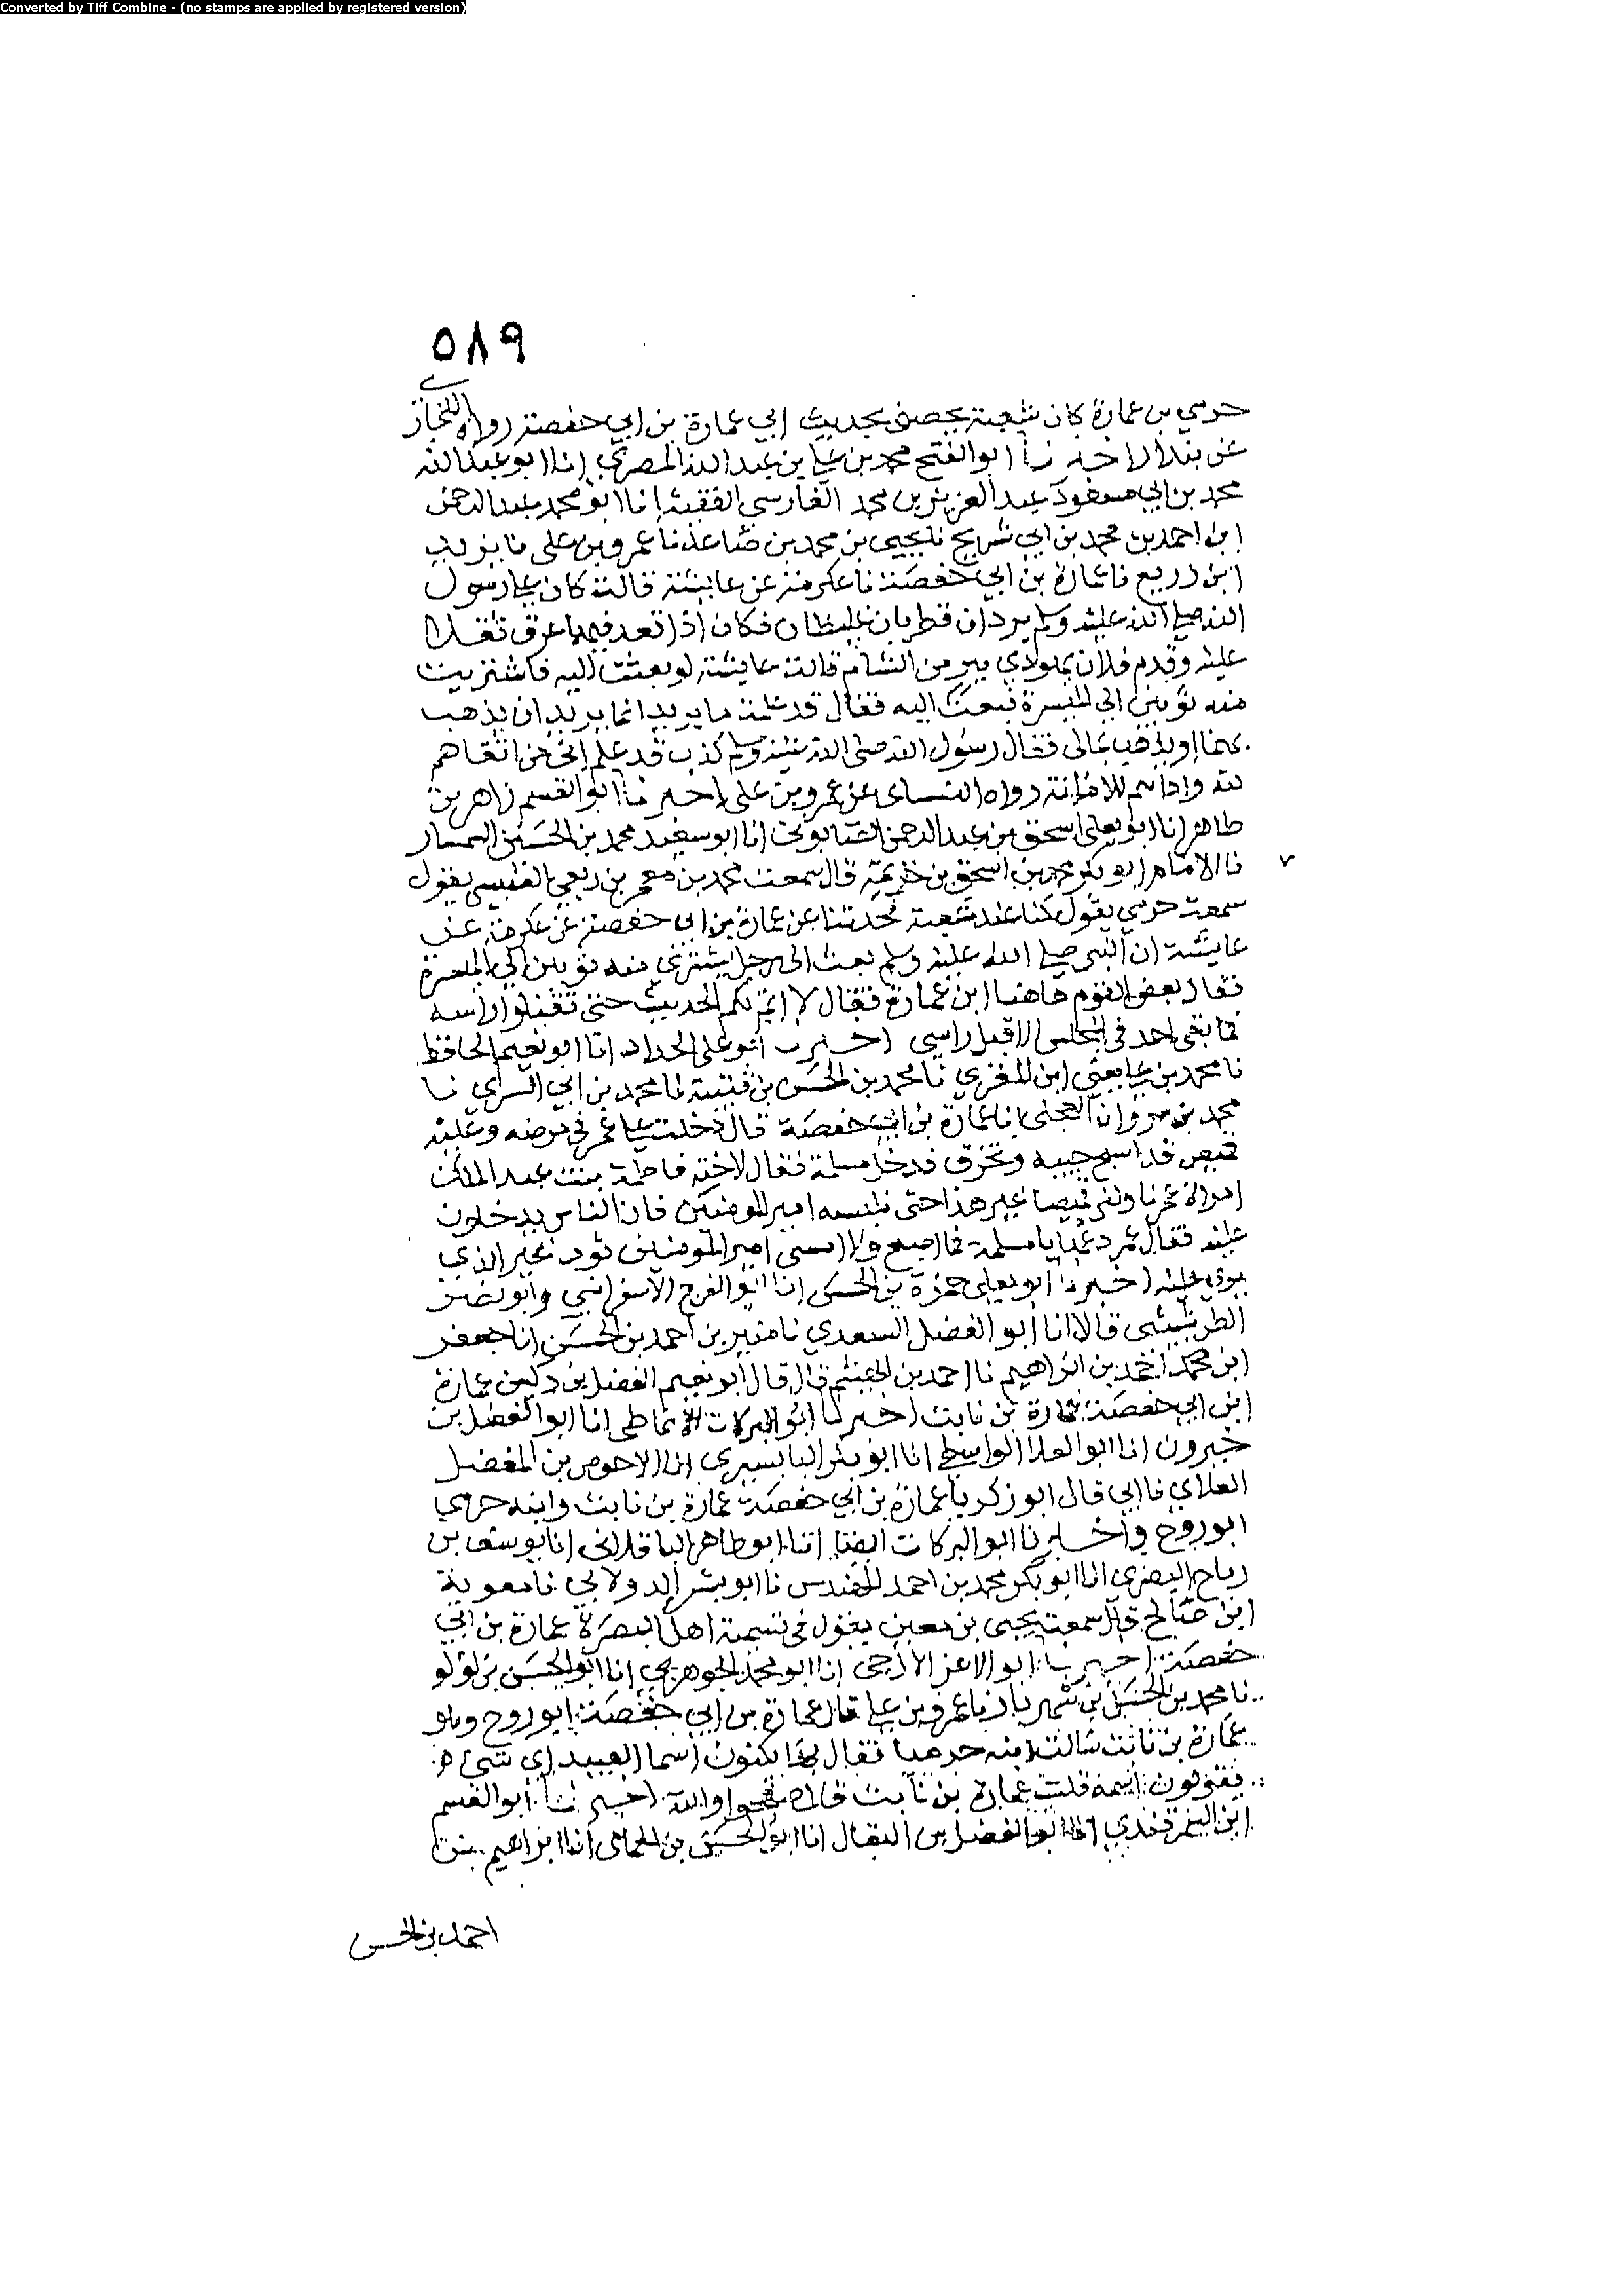 Converted by Tiff Combine - (no stamps are applied by registered version)
٥٨٩
حرمي بن عمارة كان شعبة بحديث ابي عمارة بن ابي حفصة رواه البخاري
عن بندار اخبرنا ابو الفتح محمد بن علي بن عبد الله المصري انا ابو عبد الله
محمد بن ابي مسعود عبد العزيز بن محمد الفارسي الفقيه انا ابو محمد عبد الرحمن
ابن احمد بن محمد بن ابي شريح نا يحيى بن محمد بن صاعد نا عمرو بن على نا يزيد
ابن زريع نا عمارة بن ابي حفصة نا عكرمة عن عايشة قالت كان على رسول
الله صلى الله عليه وسلم بردان قطريان غليظان فكان اذا قعد فيهما عرق ثقلا
عليه وقدم فلان اليهودي ببز من الشام قالت عايشة لو بعثت اليه فاشتريت
منه ثوبين الى الميسرة فبعث اليه فقال قد علمت ما يريد انما يريد ان يذهب
بهما او يذهب بمالى فقال رسول الله صلى الله عليه وسلم كذب قد علم انى من اتقاهم
لله واداهم للامانة رواه النساى عن عمرو بن على اخبرنا ابو القسم زاهر بن
طاهر انا ابو يعلى اسحق بن عبد الرحمن الصابونى انا ابو سعيد محمد بن الحسين السمسار
نا الامام ابو بكر محمد بن اسحق بن خزيمة قال سمعت محمد بن معمر بن ربعي القيسي يقول
سمعت حرمي يقول كنا عند شعبة فحدثنا عن عمارة بن ابي حفصة عن عكرمة عن
عايشة ان النبي صلى الله عليه وسلم بعث الى رجل يشتري منه ثوبين الى الميسرة
فقال بعض القوم هاهنا ابن عمارة فقال لا اتم لكم الحديث حتى تقبلوا راسه
فما بقى احد فى المجلس الا قبل راسي اخبرنا ابو على الحداد انا ابو نعيم الحافظ
نا محمد بن على يعني ابن المقري نا محمد بن الحسن بن قتيبة نا محمد بن ابي السري نا
محمد بن مروان العجلى نا عمارة بن ابي حفصة قال دخلت على عمر في مرضه وعليه
قميص قد اتسخ جيبه وتخرق فدخل مسلمة فقال لاخته فاطمة بنت عبد الملك
امراة عمر ناولنى قميصا غير هذا حتى نلبسه امير المومنين فان الناس يدخلون
عليه فقال عمر دعها يا مسلمة فما اصبح ولا امسى امير المومنين ثوب غير الذي
يرى عليه اخبرنا ابو يعلى حمزة بن الحسن انا ابو الفرج الاسفرايني وابو نصر
الطريثيثى قالا انا ابو الفضل السعدي نا منير بن احمد بن الحسن انا جعفر
ابن محمد احمد بن ابراهيم نا احمد بن الهيثم قال قال ابو نعيم الفضل بن دكين عمارة
ابن ابي حفصة عمارة بن نابت اخبرنا ابو البركات الانماطى انا ابو الفضل بن
خيرون انا ابو العلا الواسطى انا ابو بكر البابسيري انا الاحوص بن المفضل
الغلابي نا ابي قال ابو زكريا عمارة بن ابي حفصة عمارة بن نابت وابنه حرمي
ابو روح واخبرنا ابو البركات ايضا انا ابو طاهر الباقلانى انا يوسف بن
رباح البصرى انا ابو بكر محمد بن احمد المهندس نا ابو بشر الدولابي نا معوية
ابن صالح قال سمعت يحيى بن معين يقول فى تسمية اهل البصرة عمارة بن ابي
حفصة اخبرنا ابو الاعز الازجى انا ابو محمد الجوهري انا ابو الحسن بن لولو
نا محمد بن الحسين بن شهريار نا عمرو بن على قال عمارة بن ابي حفصة ابو روح وهو
عمارة بن نابت سالت ابنه حرميا فقال يكنون اسما العبيد اي شي
يقولون اسمه قلت عمارة بن نابت قال والله اخبرنا ابو القسم
ابن السمرقندي انا ابو الفضل بن البقال انا ابو الحسن بن الحمامى انا ابراهيم بن
احمد بن الحسن